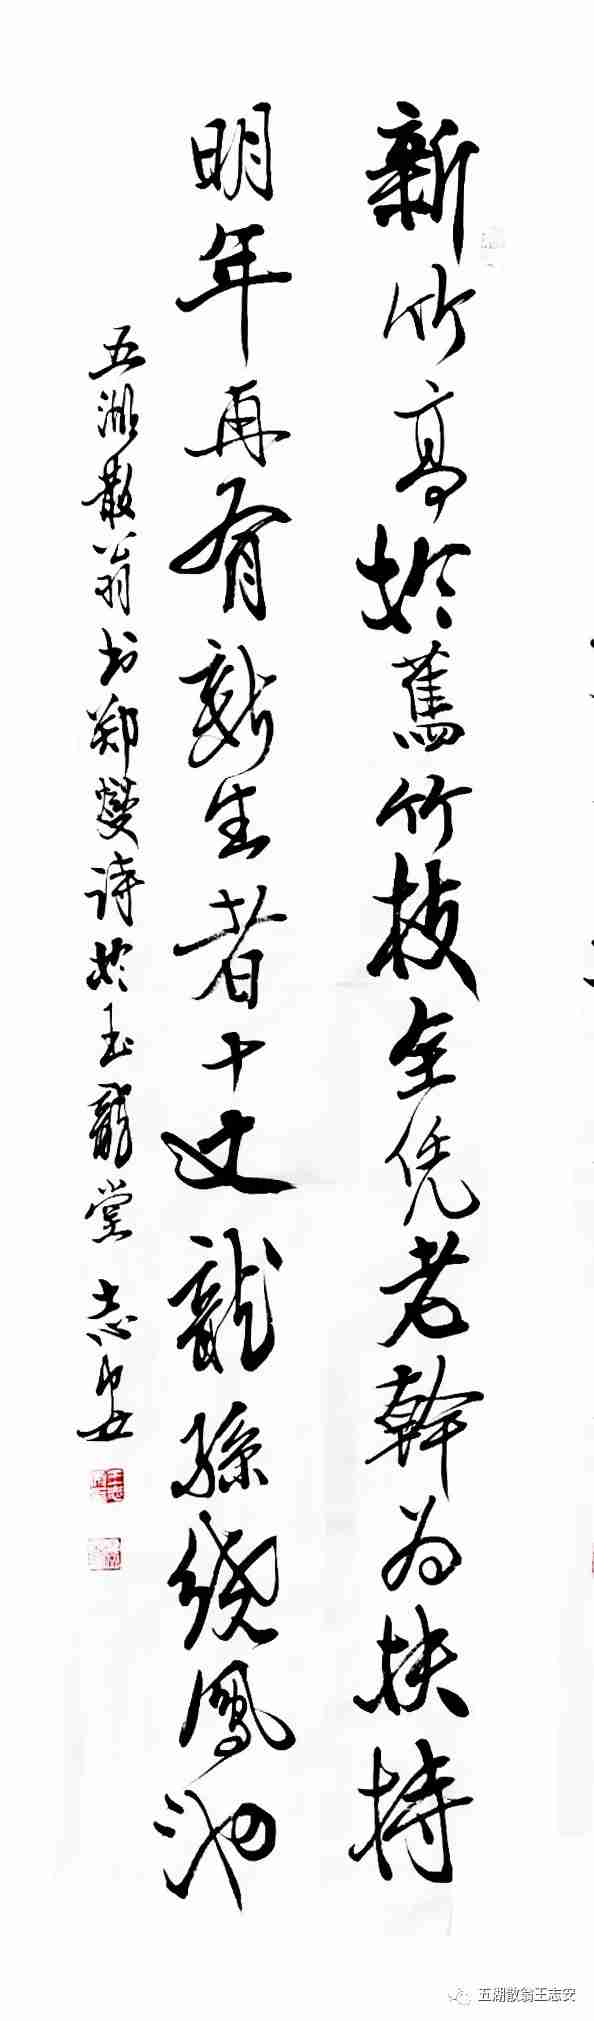 新竹高於舊竹枝全凭老幹为扶持
明年再有新生者十丈龍孫绕鳳池
五湖散翁书郑燮诗於玉龍堂 志安
五湖散翁王志安